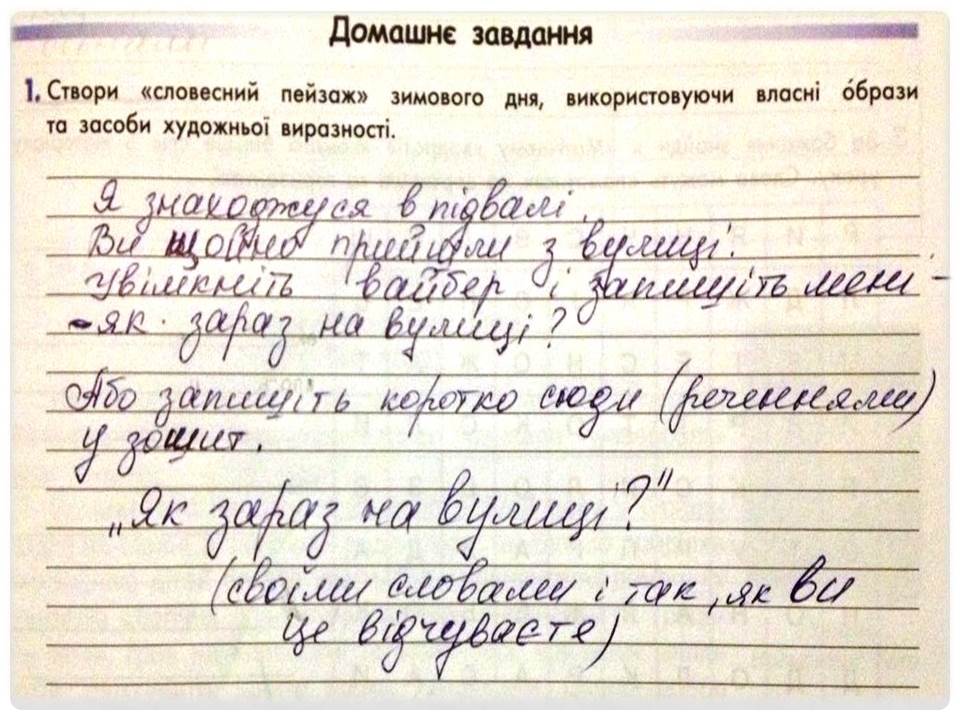 Домашнє завдання
1. Створи «словесний пейзаж» зимового дня, використовуючи власні о́брази
та засоби художньої виразності.
Я знаходжуся в підвалі.
Ви щойно прийшли з вулиці.
Увімкніть вайбер і запишіть мені –
- як зараз на вулиці?
Або запишіть коротко сюди (реченнями)
у зошит.
„Як зараз на вулиці?"
(своїми словами і так, як Ви
це відчуваєте)